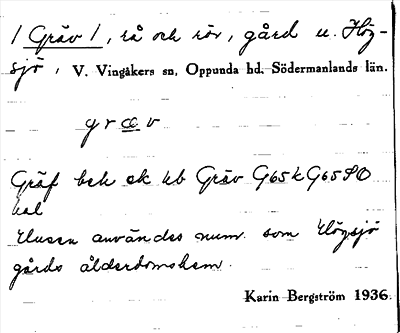 / Gräv /, rå och rör, gård u. Hög-
sjö, V. Vingåkers sn, Oppunda hd. Södermanlands län.
græv
Gräf bek ek kb Gräv G65k G65SO
kal
Husen användes num. som Högsjö
gårds ålderdomshem.
Karin Bergström 1936.